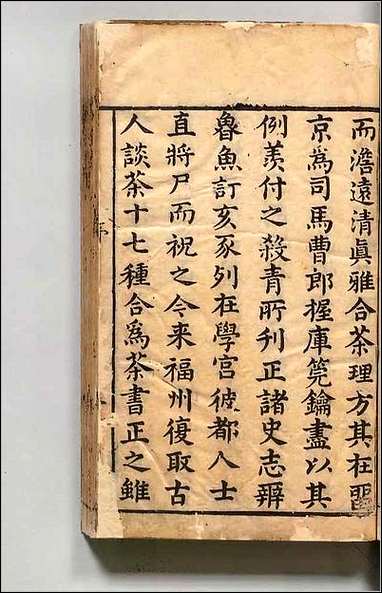 而澹遠清眞雅合茶理方其在留
京爲司馬曹郎握庫筦鑰盡以其
例羡付之殺青所刋正諸史志辯
魯魚訂亥豕列在學宮彼都人士
直將尸而祝之今来福州復取古
人談茶十七種合爲茶書正之雖